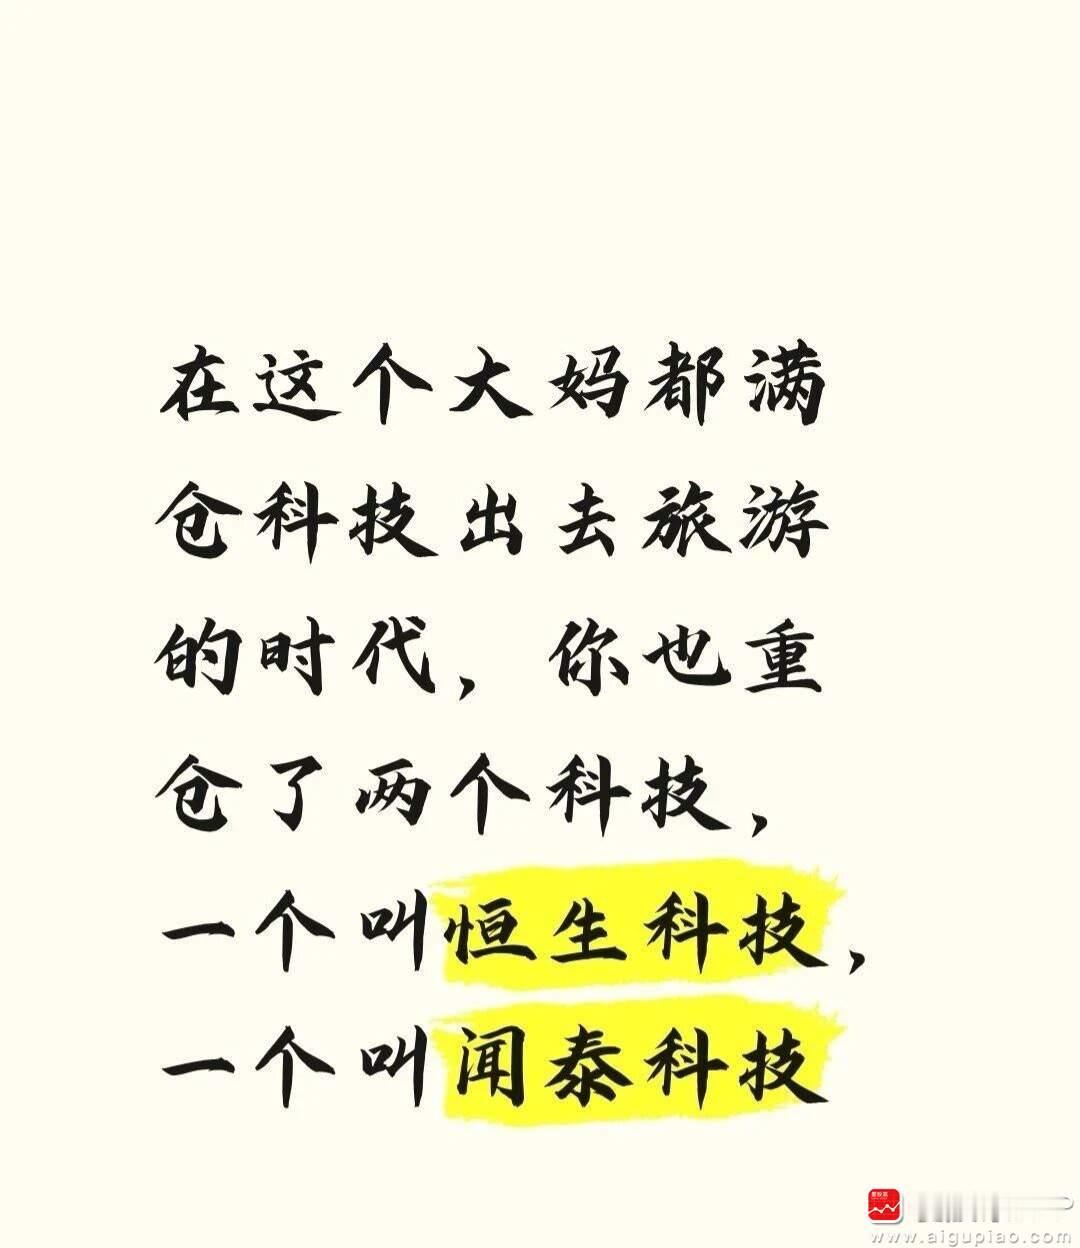 在这个大妈都满
仓科技出去旅游
的时代，你也重
仓了两个科技，
一个叫恒生科技，
一个叫闻泰科技
www.aigupiao.com